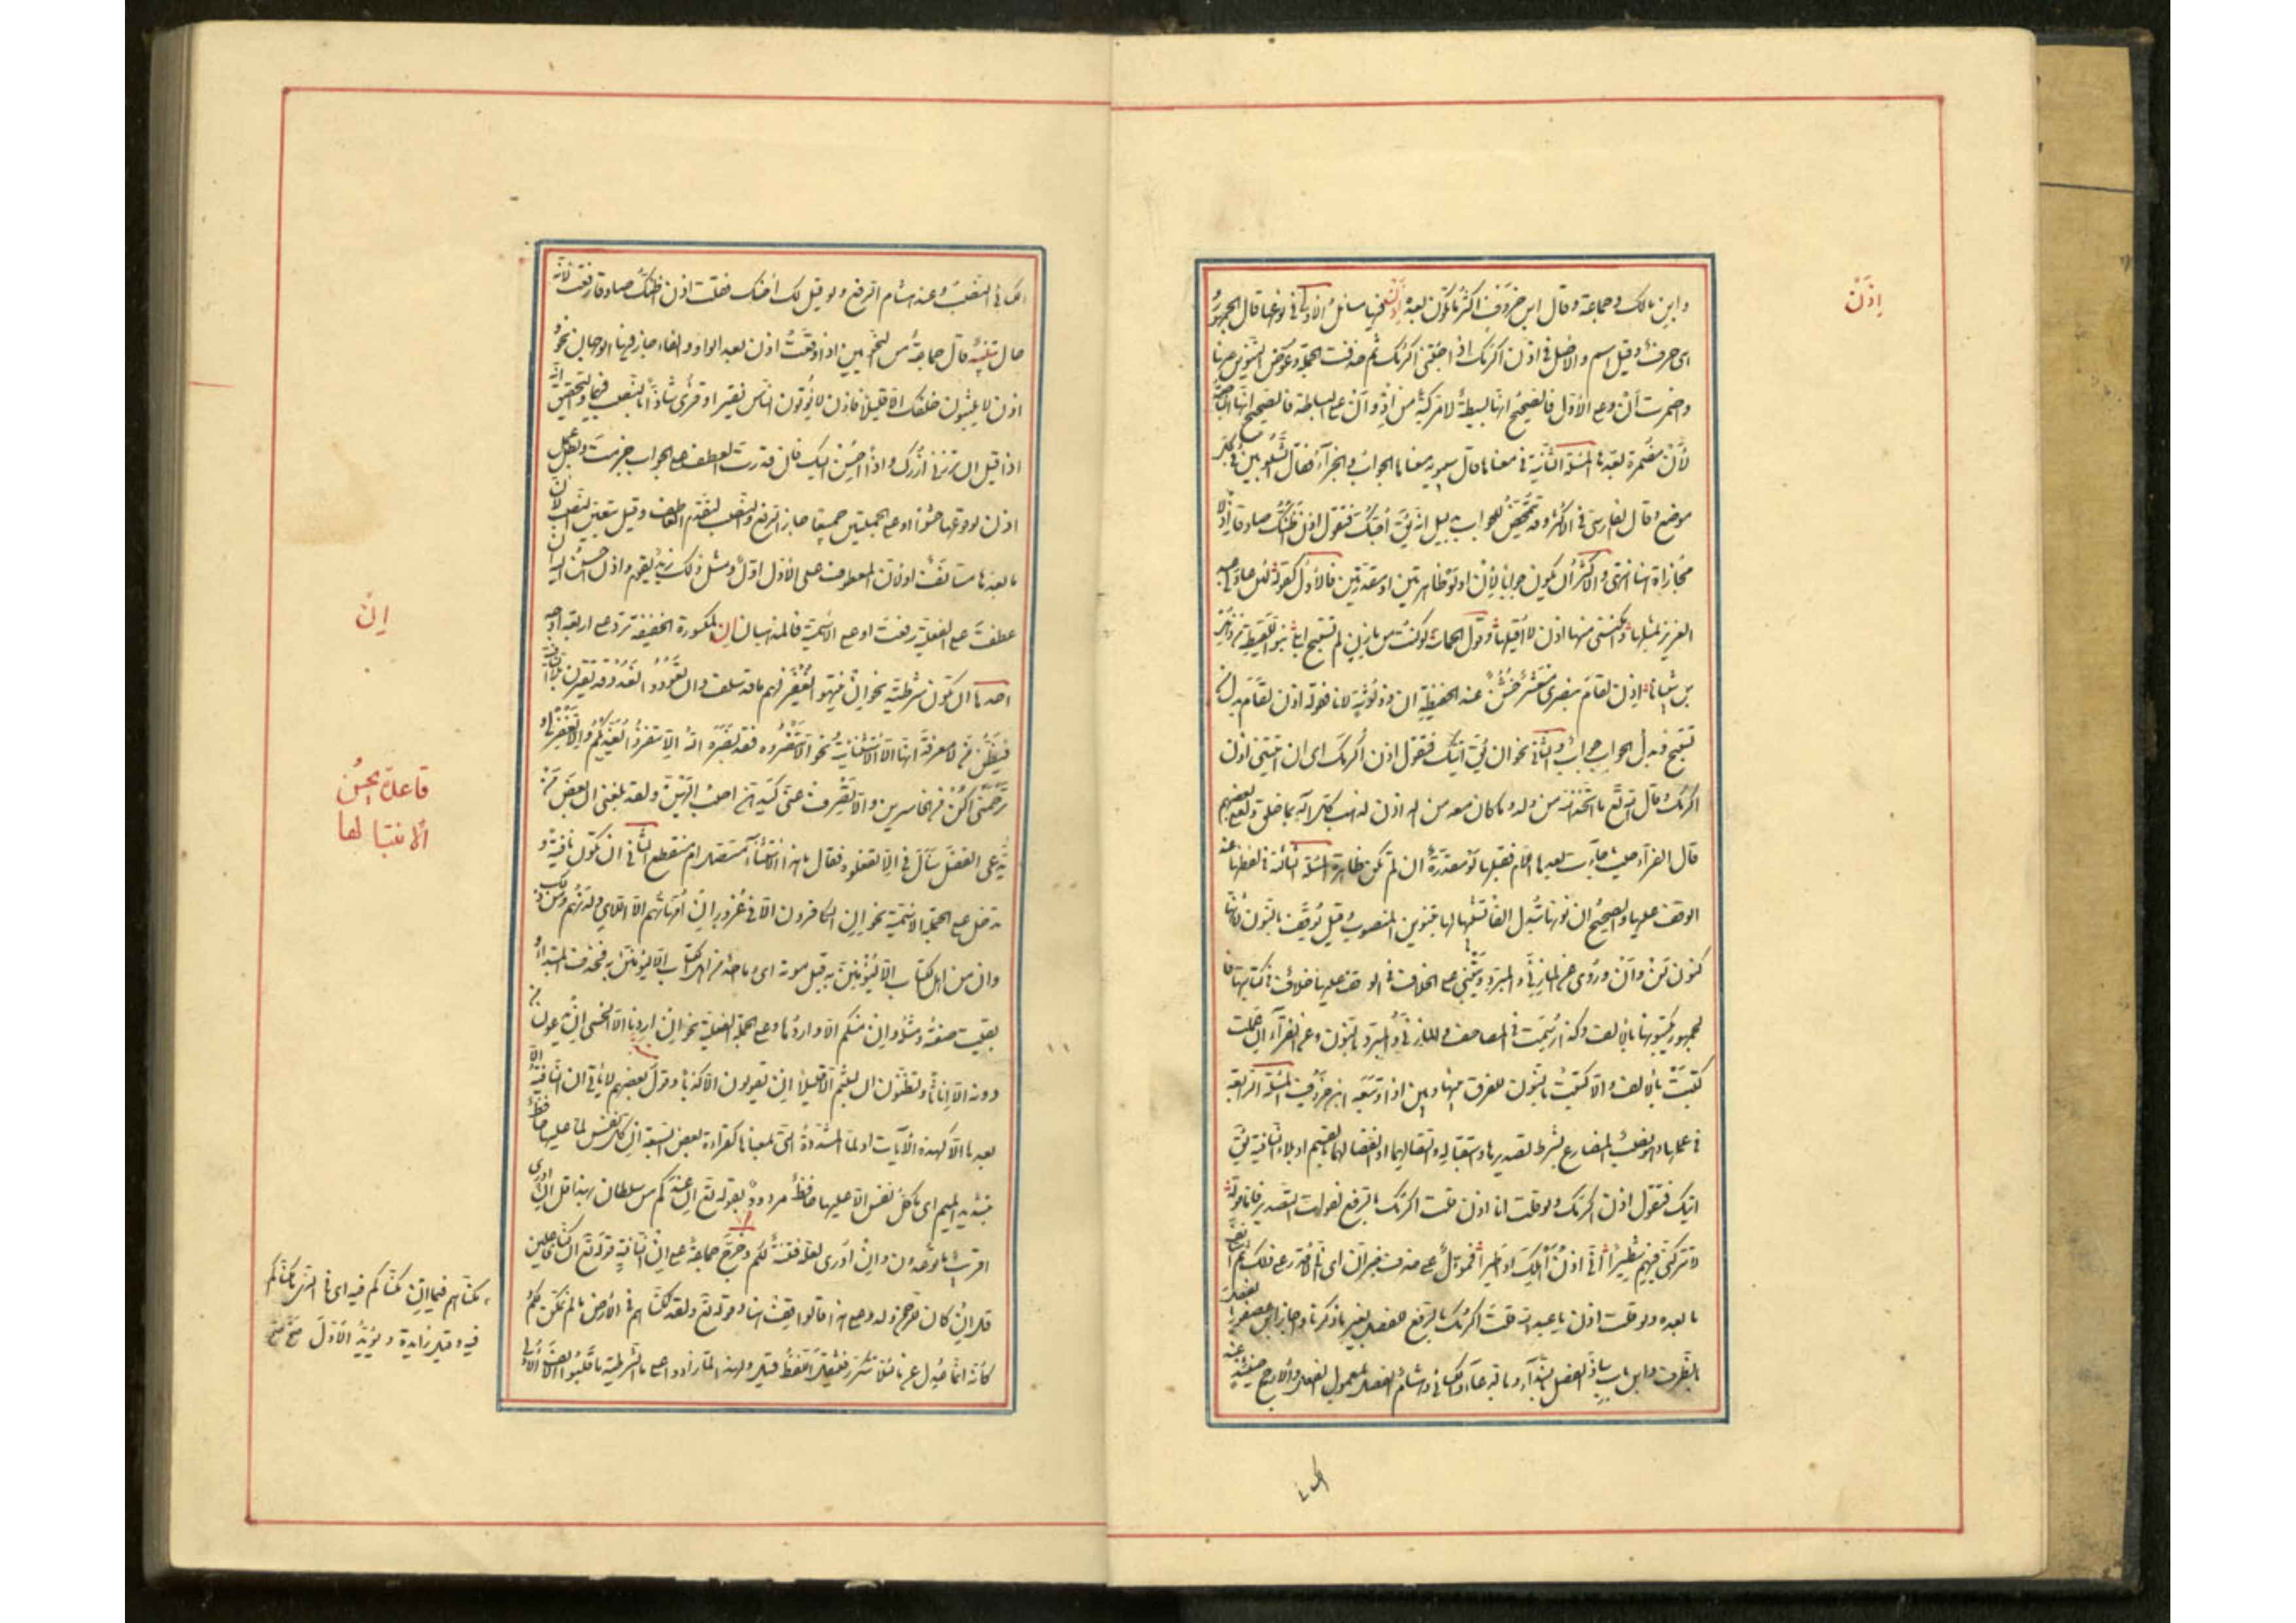 وابن مالك وجماعة وقال ابن خروف اكثر ما تكون بعده إذن فيها مسائل الاولى في نوعها قال الجمهور
اى حرف وقيل اسم والاصل في اذن اكرمك اذا جئتنى اكرمك ثم حذفت الجملة وعوض التنوين عنها
واضمرت أن وعلى الأول فالصحيح انها بسيطة لا مركبة من اذ وأن وعلى البساطة فالصحيح انها الناصبة
لا أن مضمرة بعدها المسئلة الثانية في معناها قال سيبويه معناها الجواب والجزاء فقال الشلوبين في كل
موضع وقال الفارسى في الاكثر وقد تتمحض للجواب بدليل انه يقال احبك فتقول اذن اظنك صادقا اذ لا
مجازاة هنا انتهى والاكثر ان يكون جوابا لأن او لو ظاهرتين او مقدرتين فالاول كقوله لئن عاد لى عبد
العزيز بمثلها وامكننى منها اذن لا اقيلها وقول الحماسى لو كنت من مازن لم تستبح ابلى بنو اللقيطة من ذهل
بن شيبانا اذن لقام بنصرى معشر خشن عند الحفيظة ان ذو لوثة لانا فقوله اذن لقام بدل من
تستبح وبدل الجواب جواب والثانى نحو ان يقال آتيك فتقول اذن أكرمك اى ان اتيتنى اذن
اكرمك وقال الله تع ما اتخذ الله من ولد وما كان معه من اله اذن لذهب كل اله بما خلق ولعلا بعضهم
قال الفراء حيث جاءت بعدها اللام فقبلها لو مقدرة ان لم تكن ظاهرة المسئلة الثالثة في لفظها عند
الوقف عليها والصحيح ان نونها تبدل الفا تشبيها لها بتنوين المنصوب وقيل يوقف بالنون لأنها
كنون لن وأن وروى عن المازنى والمبرد وينبنى على الخلاف في الوقف عليها خلاف في كتابتها فا
لجمهور يكتبونها بالألف وكذا رسمت في المصاحف والمازنى والمبرد بالنون وعن الفراء ان عملت
كتبت بالألف والا كتبت بالنون للفرق بينها وبين اذا وتبعه ابن خروف المسئلة الرابعة
في عملها وهو نصب المضارع بشرط تصديرها واستقباله واتصالهما او انفصالهما بالقسم او بلا النافية يقال
آتيك فتقول اذن اكرمك ولو قلت انا اذن قلت اكرمك بالرفع لفوات التصدير فاما قوله
لا تتركنى فيهم شطيرا انى اذن أهلك او اطيرا فمؤول على حذف خبر ان اى انى لا اقدر على ذلك ثم استأنف
ما بعده ولو قلت اذن يا عبد الله قلت اكرمك بالرفع للفصل بغير ما ذكرنا واجاز ابن عصفور الفصل
بالظرف وابن بابشاذ الفصل بالنداء وبالدعاء والكسائى وهشام الفصل بمعمول الفعل والارجح حينئذ عند
إذن
الكسائى النصب وعند هشام الرفع ولو قيل لك احبك فقلت اذن اظنك صادقا رفعت لانه
حال تنبيه قال جماعة من النحويين اذا وقعت اذن بعد الواو والفاء جاز فيها الوجهان نحو
اذن لا يلبثون خلفك الا قليلا فاذن لا يؤتون الناس نقيرا وقرئ شاذا بالنصب فيهما والتحقيق انه
اذا قيل ان تزرنى أزرك واذا أحسن اليك فان قدرت العطف على الجواب جزمت وبطل عمل
اذن لوقوعها حشوا او على الجملتين جميعا جاز الرفع والنصب لتقدم العاطف وقيل يتعين النصب لان
ما بعدها مستأنف او لان المعطوف على الأول اول ومثل ذلك زيد يقوم واذن احسن اليه ان
عطفت على الفعلية رفعت او على الاسمية فالمذهبان إن المكسورة الخفيفة ترد على اربعة اوجه
احدها ان تكون شرطية نحو ان ينتهوا يغفر لهم ما قد سلف وان تعودوا نعد وقد تقترن بلا النافية
فيظن من لا معرفة له انها الا الاستثنائية نحو الا تنصروه فقد نصره الله الا تنفروا يعذبكم والا تغفر لى و
ترحمنى اكن من الخاسرين والا تصرف عنى كيدهن اصب اليهن ولقد بلغنى ان بعض من
يدعى الفضل سأل في الا تفعلوه فقال ما هذا الاستثناء أمتصل ام منقطع الثانى ان تكون نافية و
تدخل على الجملة الاسمية نحو ان الكافرون الا في غرور ان أمهاتهم الا اللائى ولدنهم ومن ذلك
وان من اهل الكتاب الا ليؤمنن به قبل موته اى وما احد من اهل الكتاب الا ليؤمنن به فحذف المبتدأ و
بقيت صفته ومثله وان منكم الا واردها وعلى الجملة الفعلية نحو ان اردنا الا الحسنى ان يدعون من
دونه الا إناثا وتظنون ان لبثتم الا قليلا ان يقولون الا كذبا وقول بعضهم لا تأتى ان النافية الا و
بعدها الا كهذه الآيات او لما المشددة التى بمعناها كقراءة بعض السبعة ان كل نفس لما عليها حافظ
بتشديد الميم اى ما كل نفس الا عليها حافظ مردود بقوله تع ان عندكم من سلطان بهذا قل ان ادرى
اقريب ما توعدون وان أدرى لعله فتنة لكم وخرج جماعة على ان النافية قوله تع ان كنا فاعلين
قل ان كان للرحمن ولد وعلى هذا فالوقف هنا وقوله تع ولقد مكناهم في الأرض ما لم نمكن لكم
كأنه انما عدل عن ما لئلا تتكرر فيثقل اللفظ قيل ولهذا لما زادوا على ما الشرطية ما قلبوا الف الأولى
إن
قاعدة يحسن
الانتباه لها
مكناهم فيما ان مكناكم فيه اى في الذى ما مكناكم
فيه وقيل زايدة ويؤيد الاول صح